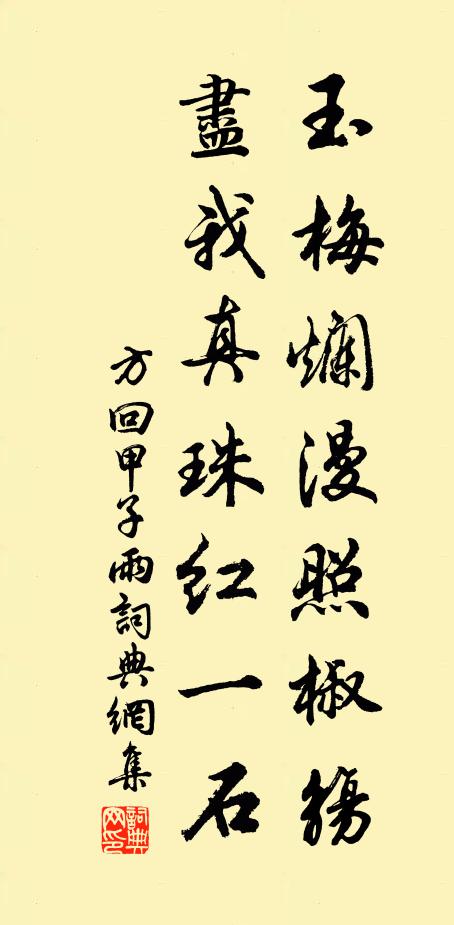 玉梅爛漫照椒觴
盡我真珠紅一石
方回甲子雨詞典網集
詞典网印